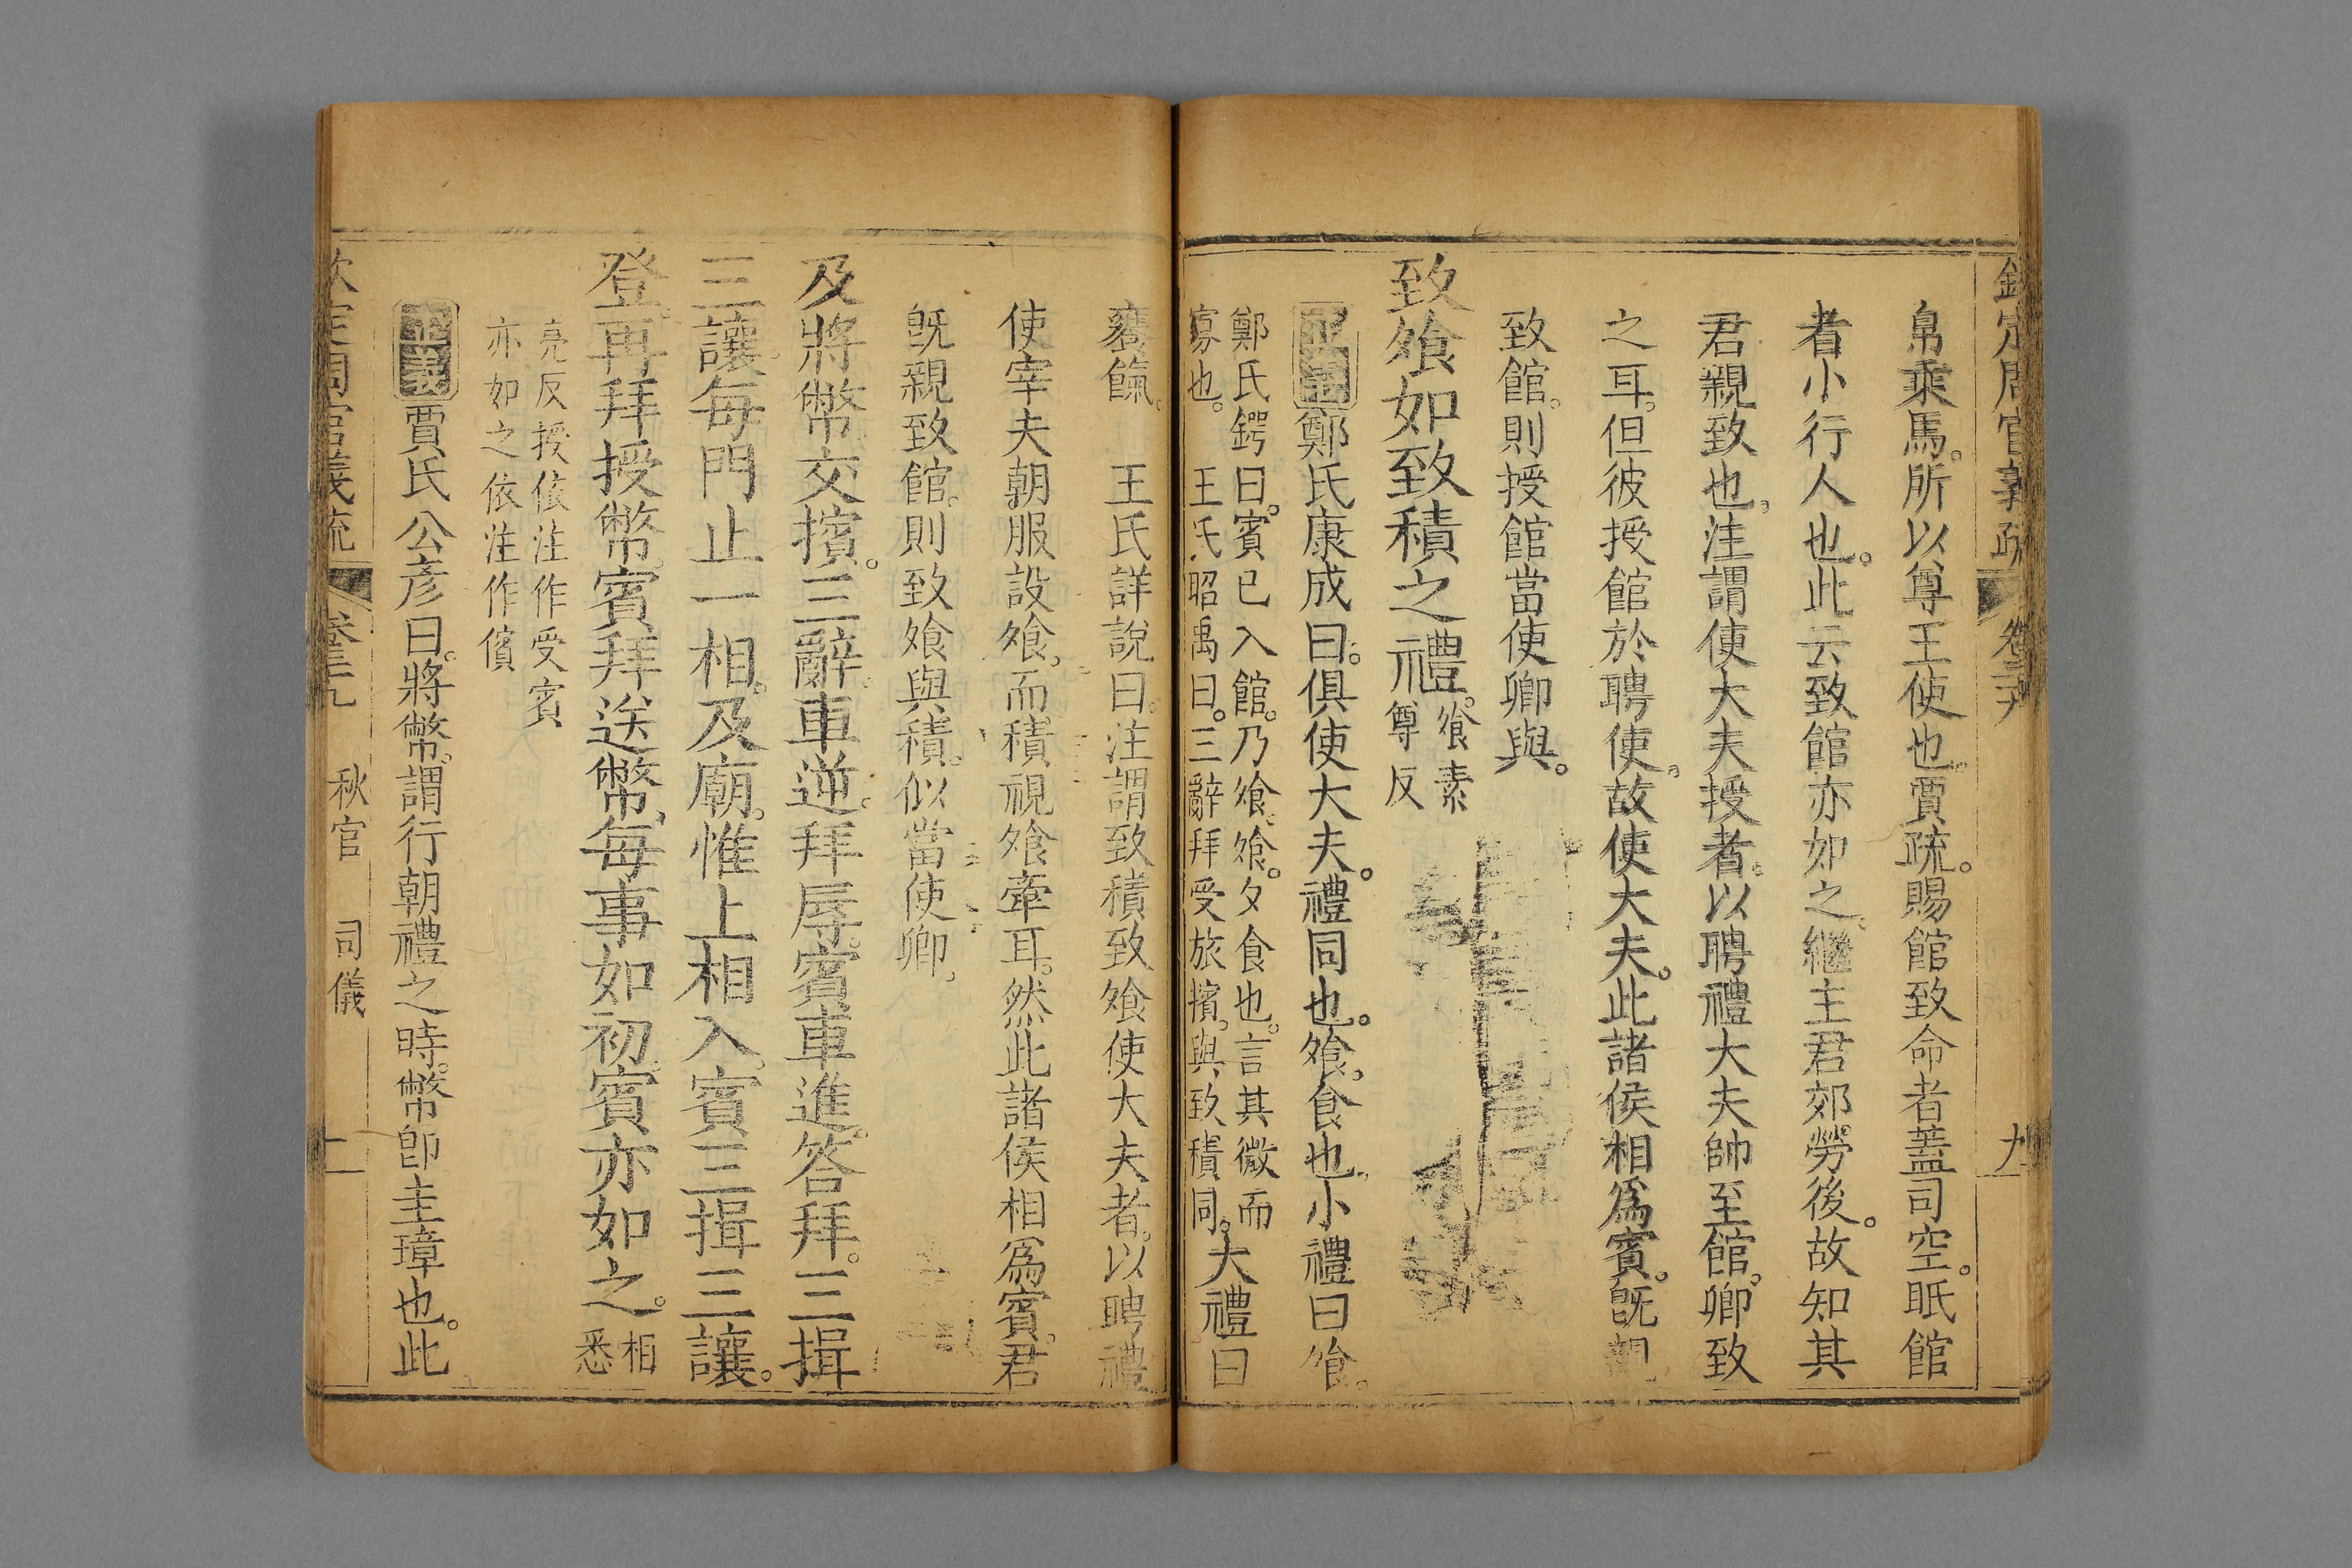 欽定周官義疏 卷三十九 九
帛乘馬。所以尊王使也。賈疏。賜館致命者蓋司空。眂館
者小行人也。此云致館亦如之。繼主君郊勞後。故知其
君親致也。注謂使大夫授者。以聘禮大夫帥至館。卿致
之耳。但彼授館於聘使。故使大夫。此諸侯相爲賓。既親
致館。則授館當使卿與。
致飧如致積之禮。飧素
尊反
正義鄭氏康成曰。俱使大夫。禮同也。飧。食也。小禮曰飧。
大禮曰
鄭氏鍔曰。賓已入館。乃飧。飧。夕食也。言其微而
寡也。 王氏昭禹曰。三辭拜受旅擯。與致積同。
饔餼。 王氏詳說曰。注謂致積致飧使大夫者。以聘禮
使宰夫朝服設飧。而積視飧牽耳。然此諸侯相爲賓。君
旣親致館。則致飧與積。似當使卿。
及將幣交擯。三辭。車逆。拜辱。賓車進。答拜。三揖
三讓。每門止一相。及廟。惟上相入。賓三揖三讓。
登。再拜授幣。賓拜送幣。每事如初。賓亦如之。相
悉
亮反授依注作受賓
亦如之依注作儐
正義賈氏公彥曰。將幣。謂行朝禮之時。幣卽圭璋也。此
欽定周官義疏 卷三十九 秋官 司儀